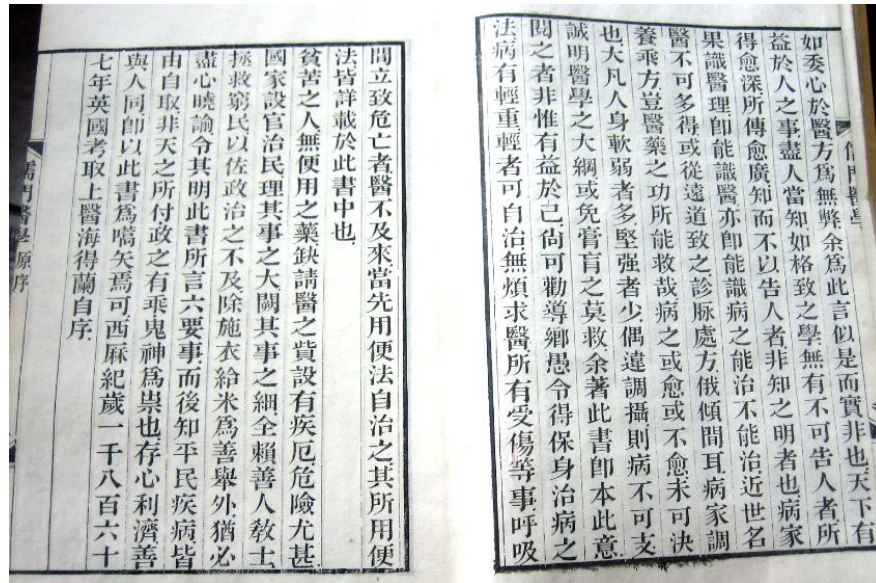 如委心於醫方爲無弊余爲此言似是而實非也天下有
益於人之事盡人當知如格致之學無有不可告人者所
得愈深所傳愈廣知而不以告人者非知之明者也病家
果識醫理卽能識醫亦卽能識病之能治不能治近世名
醫不可多得或從遠道致之診脉處方俄傾間耳病家調
養乖方豈醫藥之功所能救哉病之或愈或不愈未可決
也大凡人身軟弱者多堅强者少偶違調攝則病不可支
誠明醫學之大綱或免膏肓之莫救余著此書卽本此意
閱之者非惟有益於己尙可勸導鄉愚令得保身治病之
法病有輕重輕者可自治無煩求醫所有受傷等事呼吸
儒門醫學
間立致危亡者醫不及來當先用便法自治之其所用便
法皆詳載於此書中也
貧苦之人無便用之藥缺請醫之貲設有疾厄危險尤甚
國家設官治民理其事之大闗其事之細全賴善人敎士
拯救窮民以佐政治之不及除施衣給米爲善舉外猶必
盡心曉諭令其明此書所言六要事而後知平民疾病皆
由自取非天之所付政之有乖鬼神爲祟也存心利濟善
與人同卽以此書爲嚆矢焉可西厤紀歲一千八百六十
七年英國考取上醫海得蘭自序
儒門醫學 原序